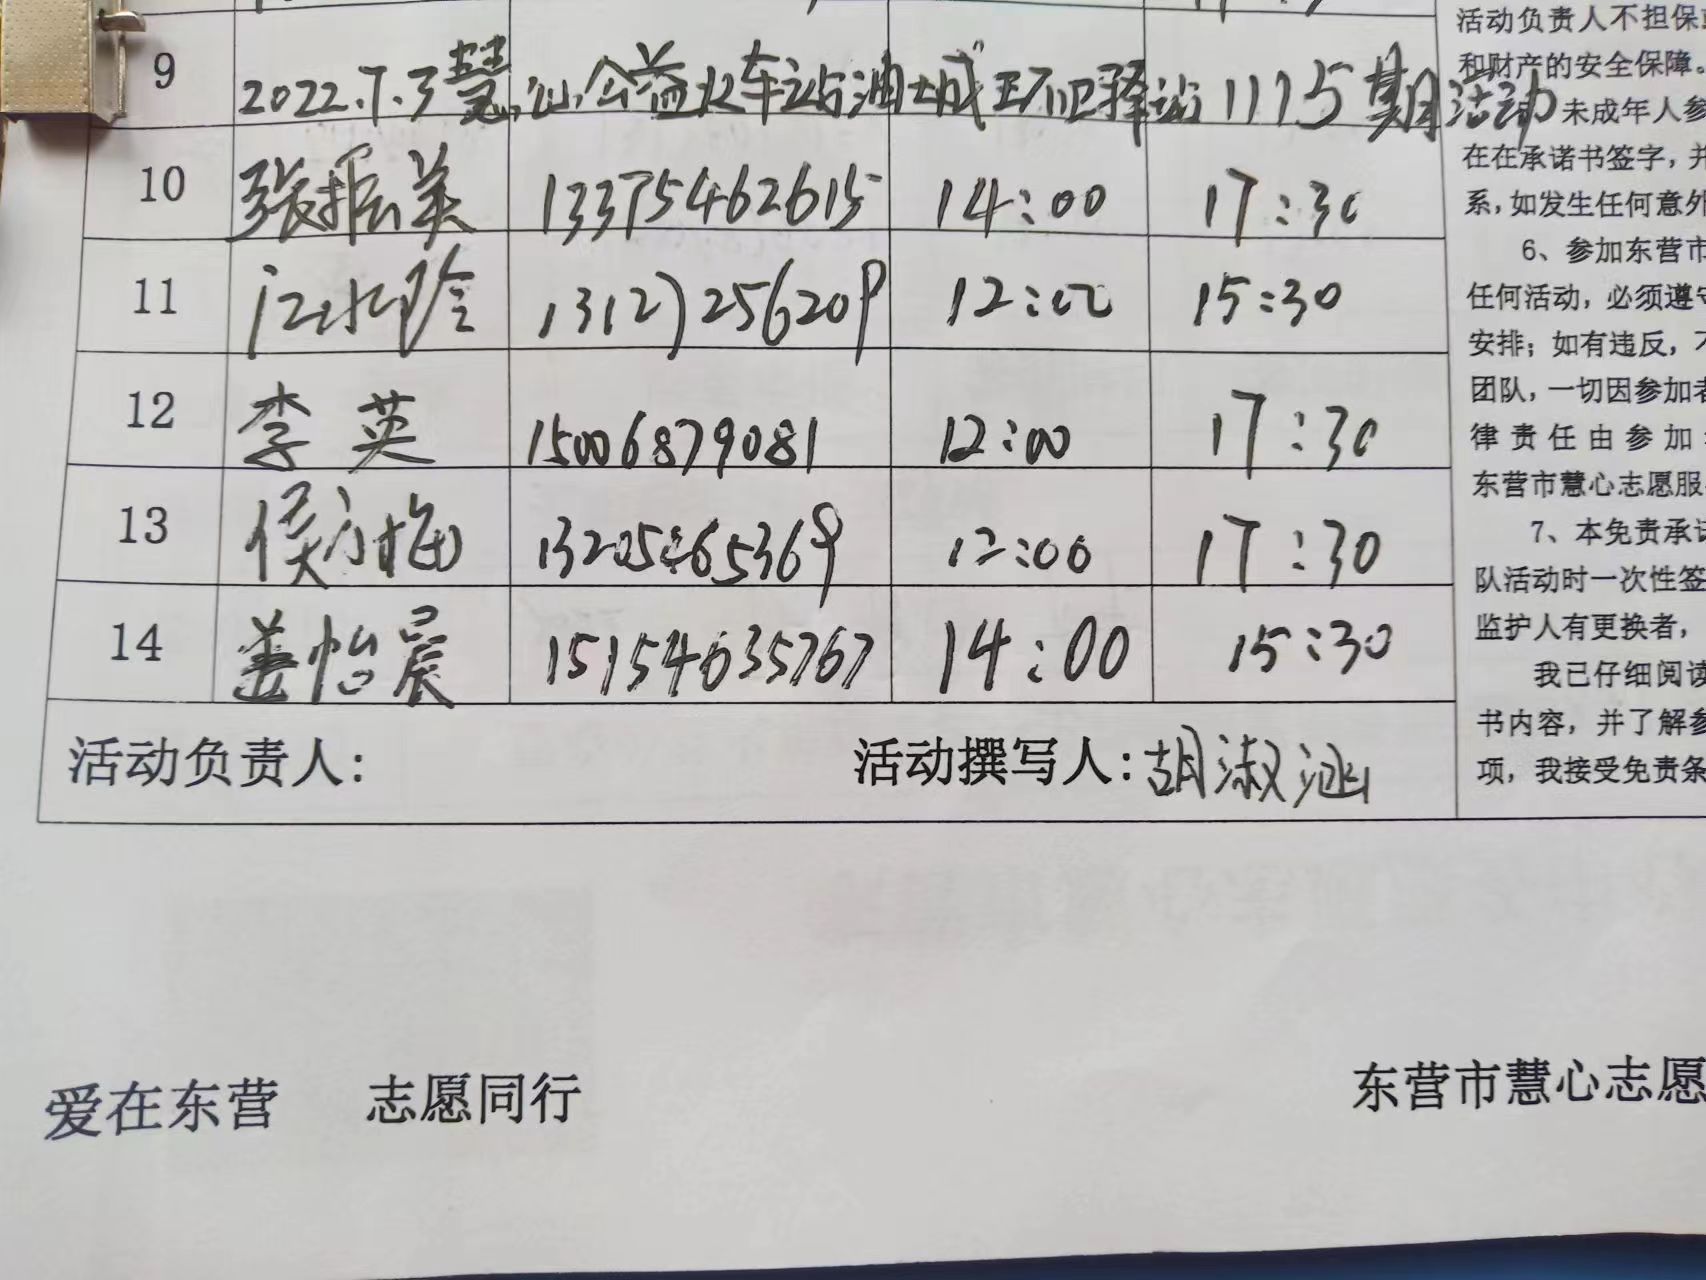 9 2022.7.3慧心公益火车站油城环卫驿站1175期活动
10 张振美 13375462615 14:00 17:30
11 江水玲 13127256209 12:00 15:30
12 李英 15006879081 12:00 17:30
13 侯永梅 13205465369 12:00 17:30
14 盖怡晨 15154635767 14:00 15:30
活动负责人: 活动撰写人:胡淑涵
活动负责人不担保
和财产的安全保障。
未成年人参
在在承诺书签字,并
系,如发生任何意外
6、参加东营市
任何活动,必须遵守
安排;如有违反,不
团队,一切因参加者
律责任由参加
东营市慧心志愿服
7、本免责承诺
队活动时一次性签
监护人有更换者,
我已仔细阅读
书内容,并了解参
项,我接受免责条
爱在东营 志愿同行
东营市慧心志愿